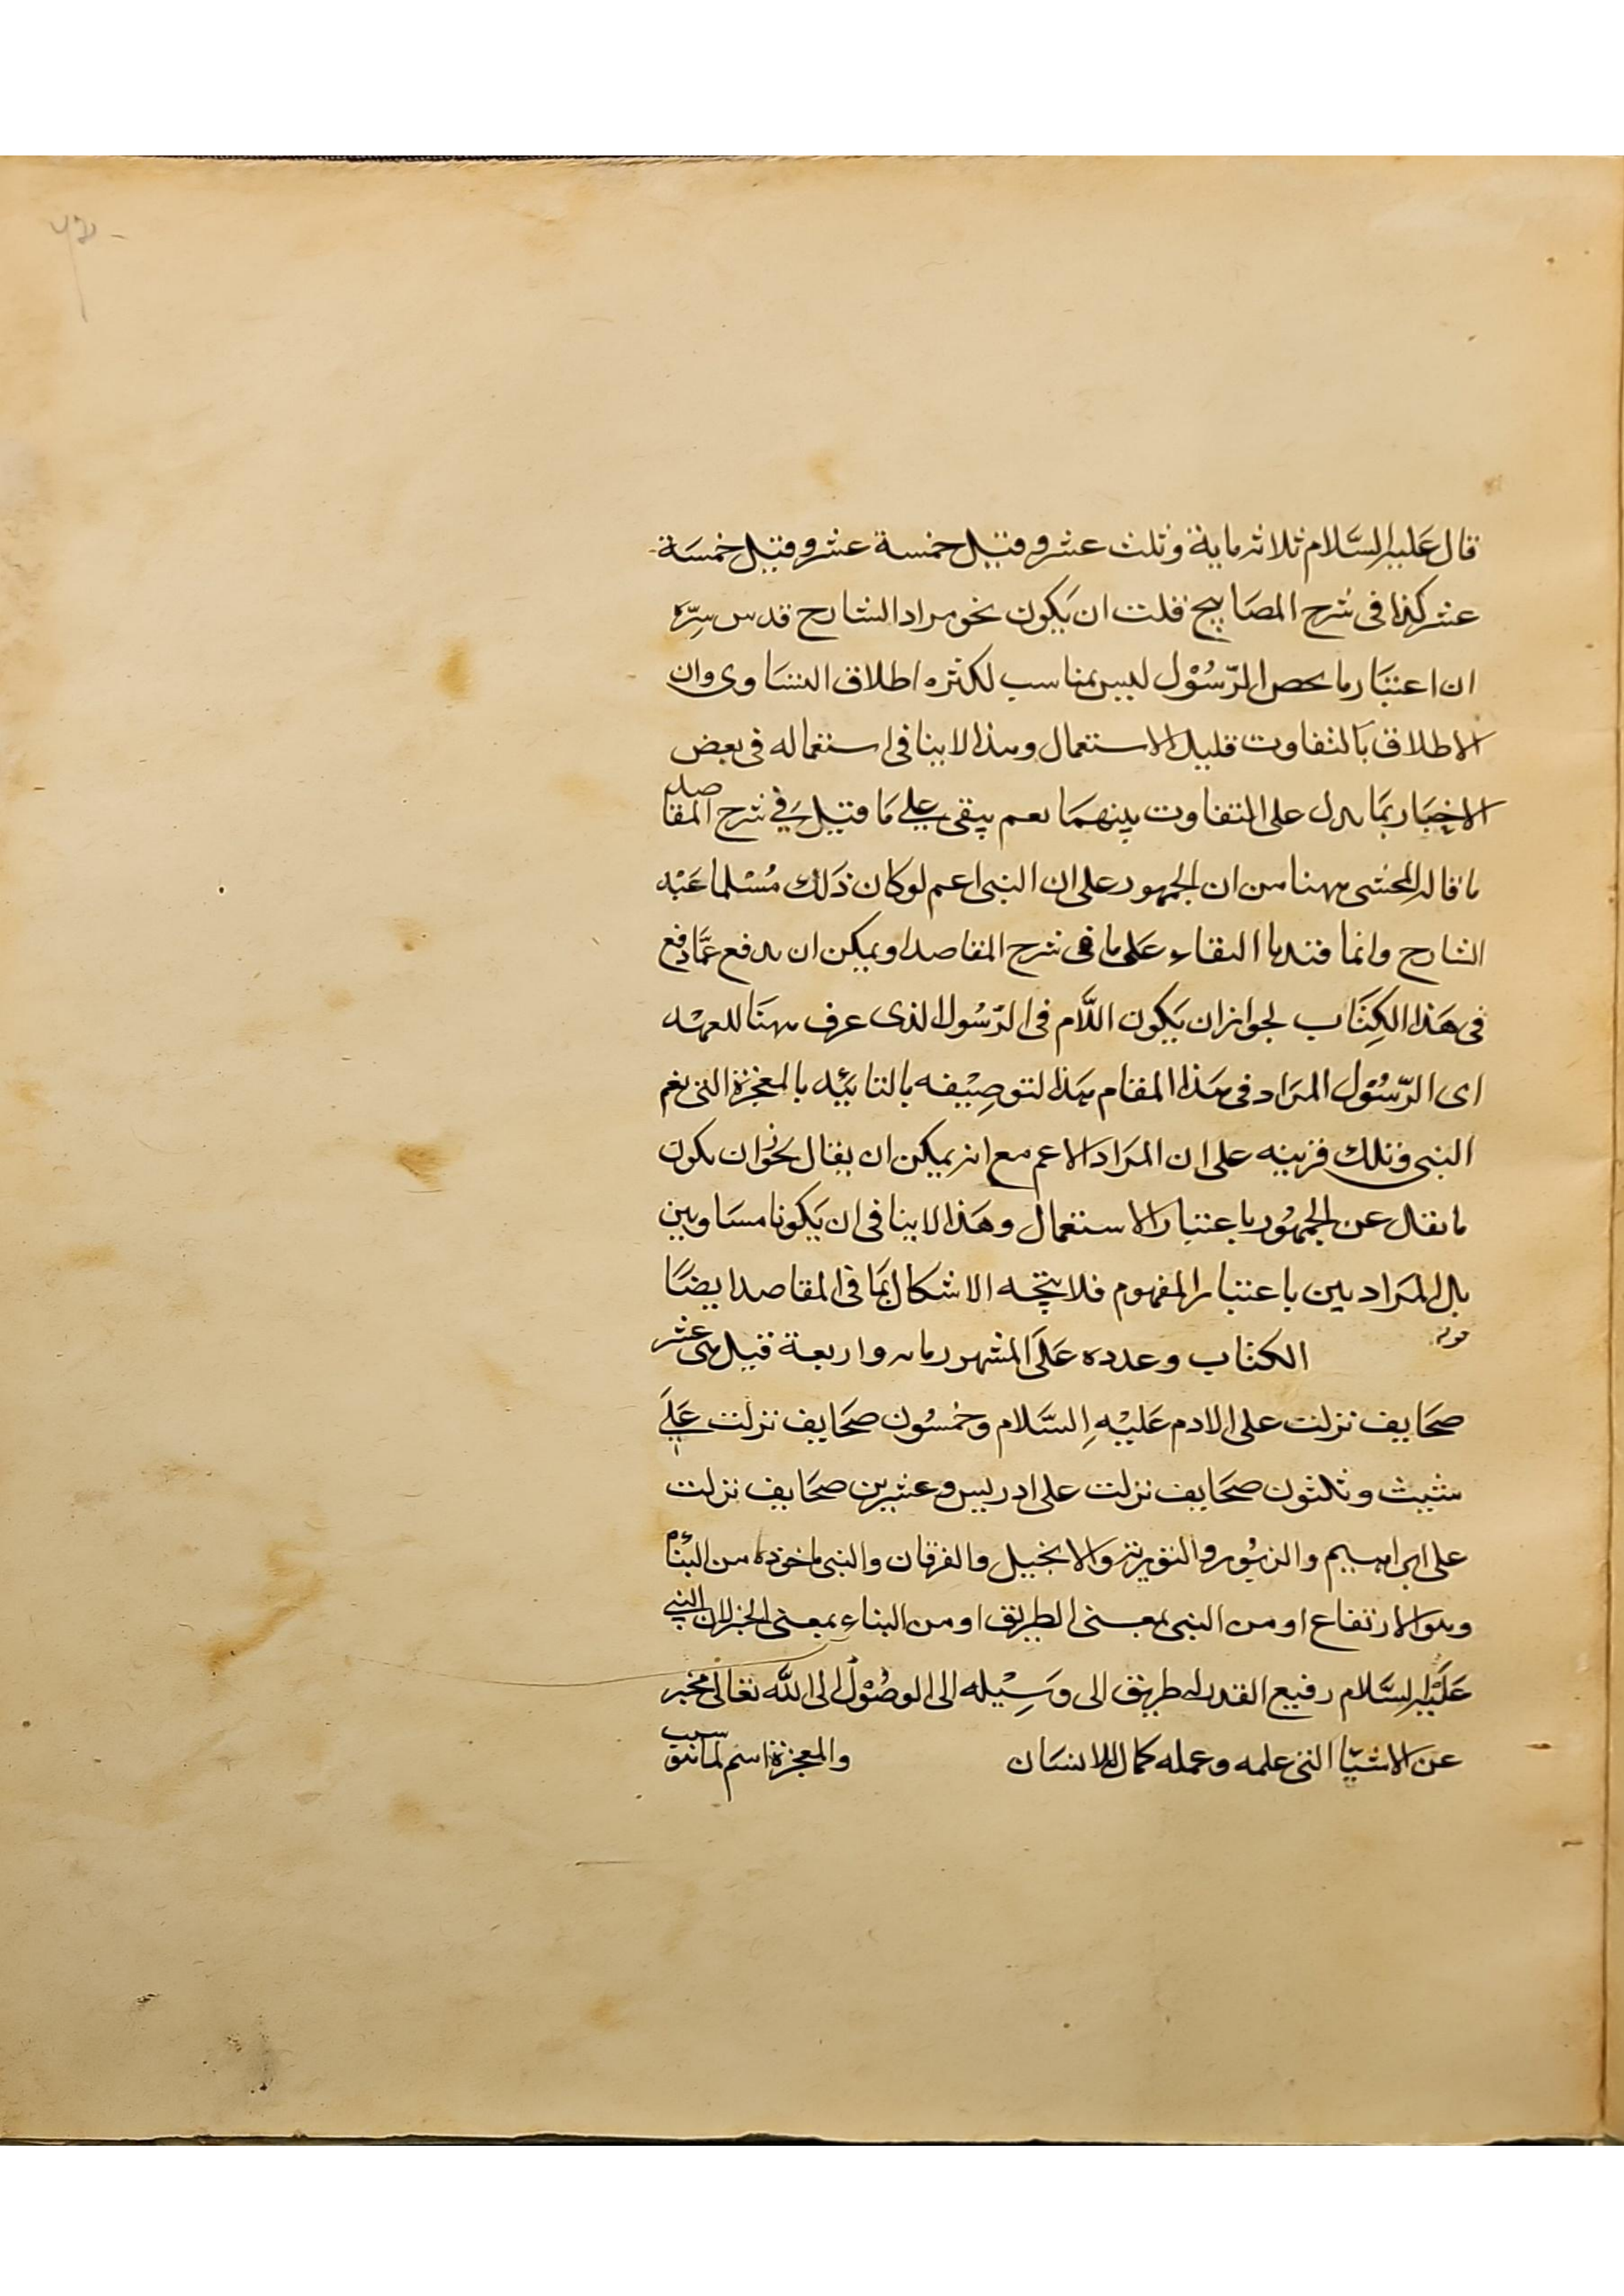 قال عليه السَّلام ثلاثمایة وثلث عشر وقيل خمسة عشر وقيل خمسَة
عشر كذا فى شرح المصَابيح قلت ان يَكون نحو مراد الشارح قدس سِرّه
ان اعتبَار ما يخص الرّسُوْل ليس بمناسب لكثره اطلاق التسَاوى وان
الاطلاق بَالتفاوت قليل الاستعمال وهذا لاينافى استعماله فى بعض
الاخبَار بمَا يدل على التفاوت بينهمَا نعم يبقى على مَا قيل فى شرح المقاصد
ما قاله المحشى ههنا من ان الجمهور على ان النبى اعم لو كان ذلك مُسْلما عنْد
الشارح وانما قيدنا البقاء عَلى ما فى شرح المقاصد ويمكن ان يدفع عمَّا دفع
فى هَذا الكِتَاب لجواز ان يَكون اللَّام فى الرّسُول الذى عرف ههنَا للعهْد
اى الرّسُوْل المرَاد فى هَذا المقام هَذا لتوصِيْفه بالتابيْد بالمعجزة التى نعم
النبى وتلك قرينه على ان المرَاد الاعم مع انه يمكن ان يقال نحوَ ان يكون
ما يقال عن الجمهُور باعتبار الاستعمال وهَذا لاينافى ان يَكونا مسَاويين
بل المرَادبين باعتبار المفهوم فلا يتجه الاشكال بمَا فى المقاصد ايضًا
قوله الكتاب وعدده عَلَى المشهور مايه واربعة قيل عشر
صحَايف نزلت على الادم عَليْهِ السَّلام وخمسُون صحَايف نزلت عَلَى
شيث وثلثون صحَايف نزلت على ادريس وعشرين صحَايف نزلت
على ابراهيم والزبُور والتوريته والانجيل والفرقان والنبى ماخوذه من النبْأه
وهو الارتفاع او من النبى بمعنى الطريق او من النباء بمعنى الخبر لان النبى
عَليْه السَّلام رفيع القدر له طريق الى وَسِيْله الى الوصُوْل الى اللّه تعَالى مخبر
عن الاشيّا التى علمه وعمله كمال للانسَان والمعجزة اسم لما